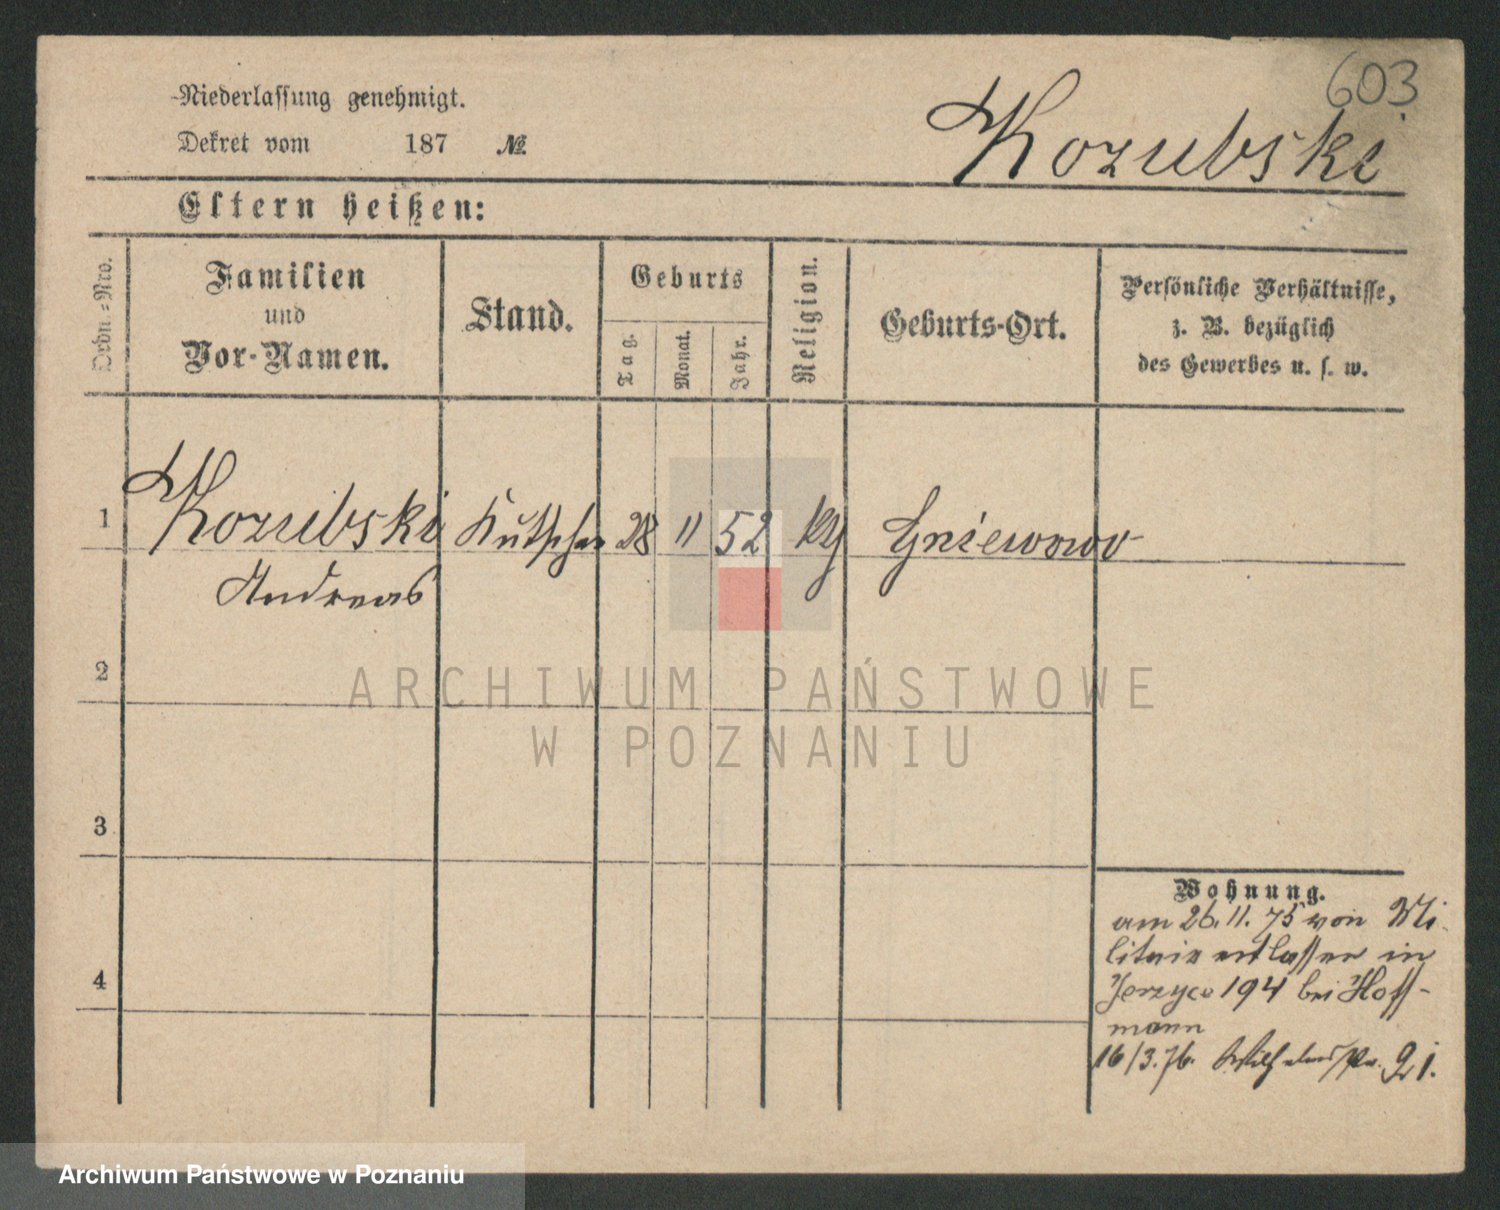 603
Niederlassung genehmigt.
Kozubski
Dekret vom 187 №
Eltern heißen:
Ordn.-Nro.
Familien
und
Vor-Namen.
Stand.
Geburts
Tag.
Monat.
Jahr.
Religion.
Geburts-Ort.
Persönliche Verhältnisse,
z. B. bezüglich
des Gewerbes u. s. w.
1 Kozubski Kutscher 28 11 52 kth Gniewowo
Andreas
2
ARCHIWUM PAŃSTWOWE
W POZNANIU
3
Wohnung.
am 26.11.75 von Mi-
litair entlassen in
Jerzyce 194 bei Hoff-
mann
4
16/3.76. Wilhelmspl. 21.
Archiwum Państwowe w Poznaniu